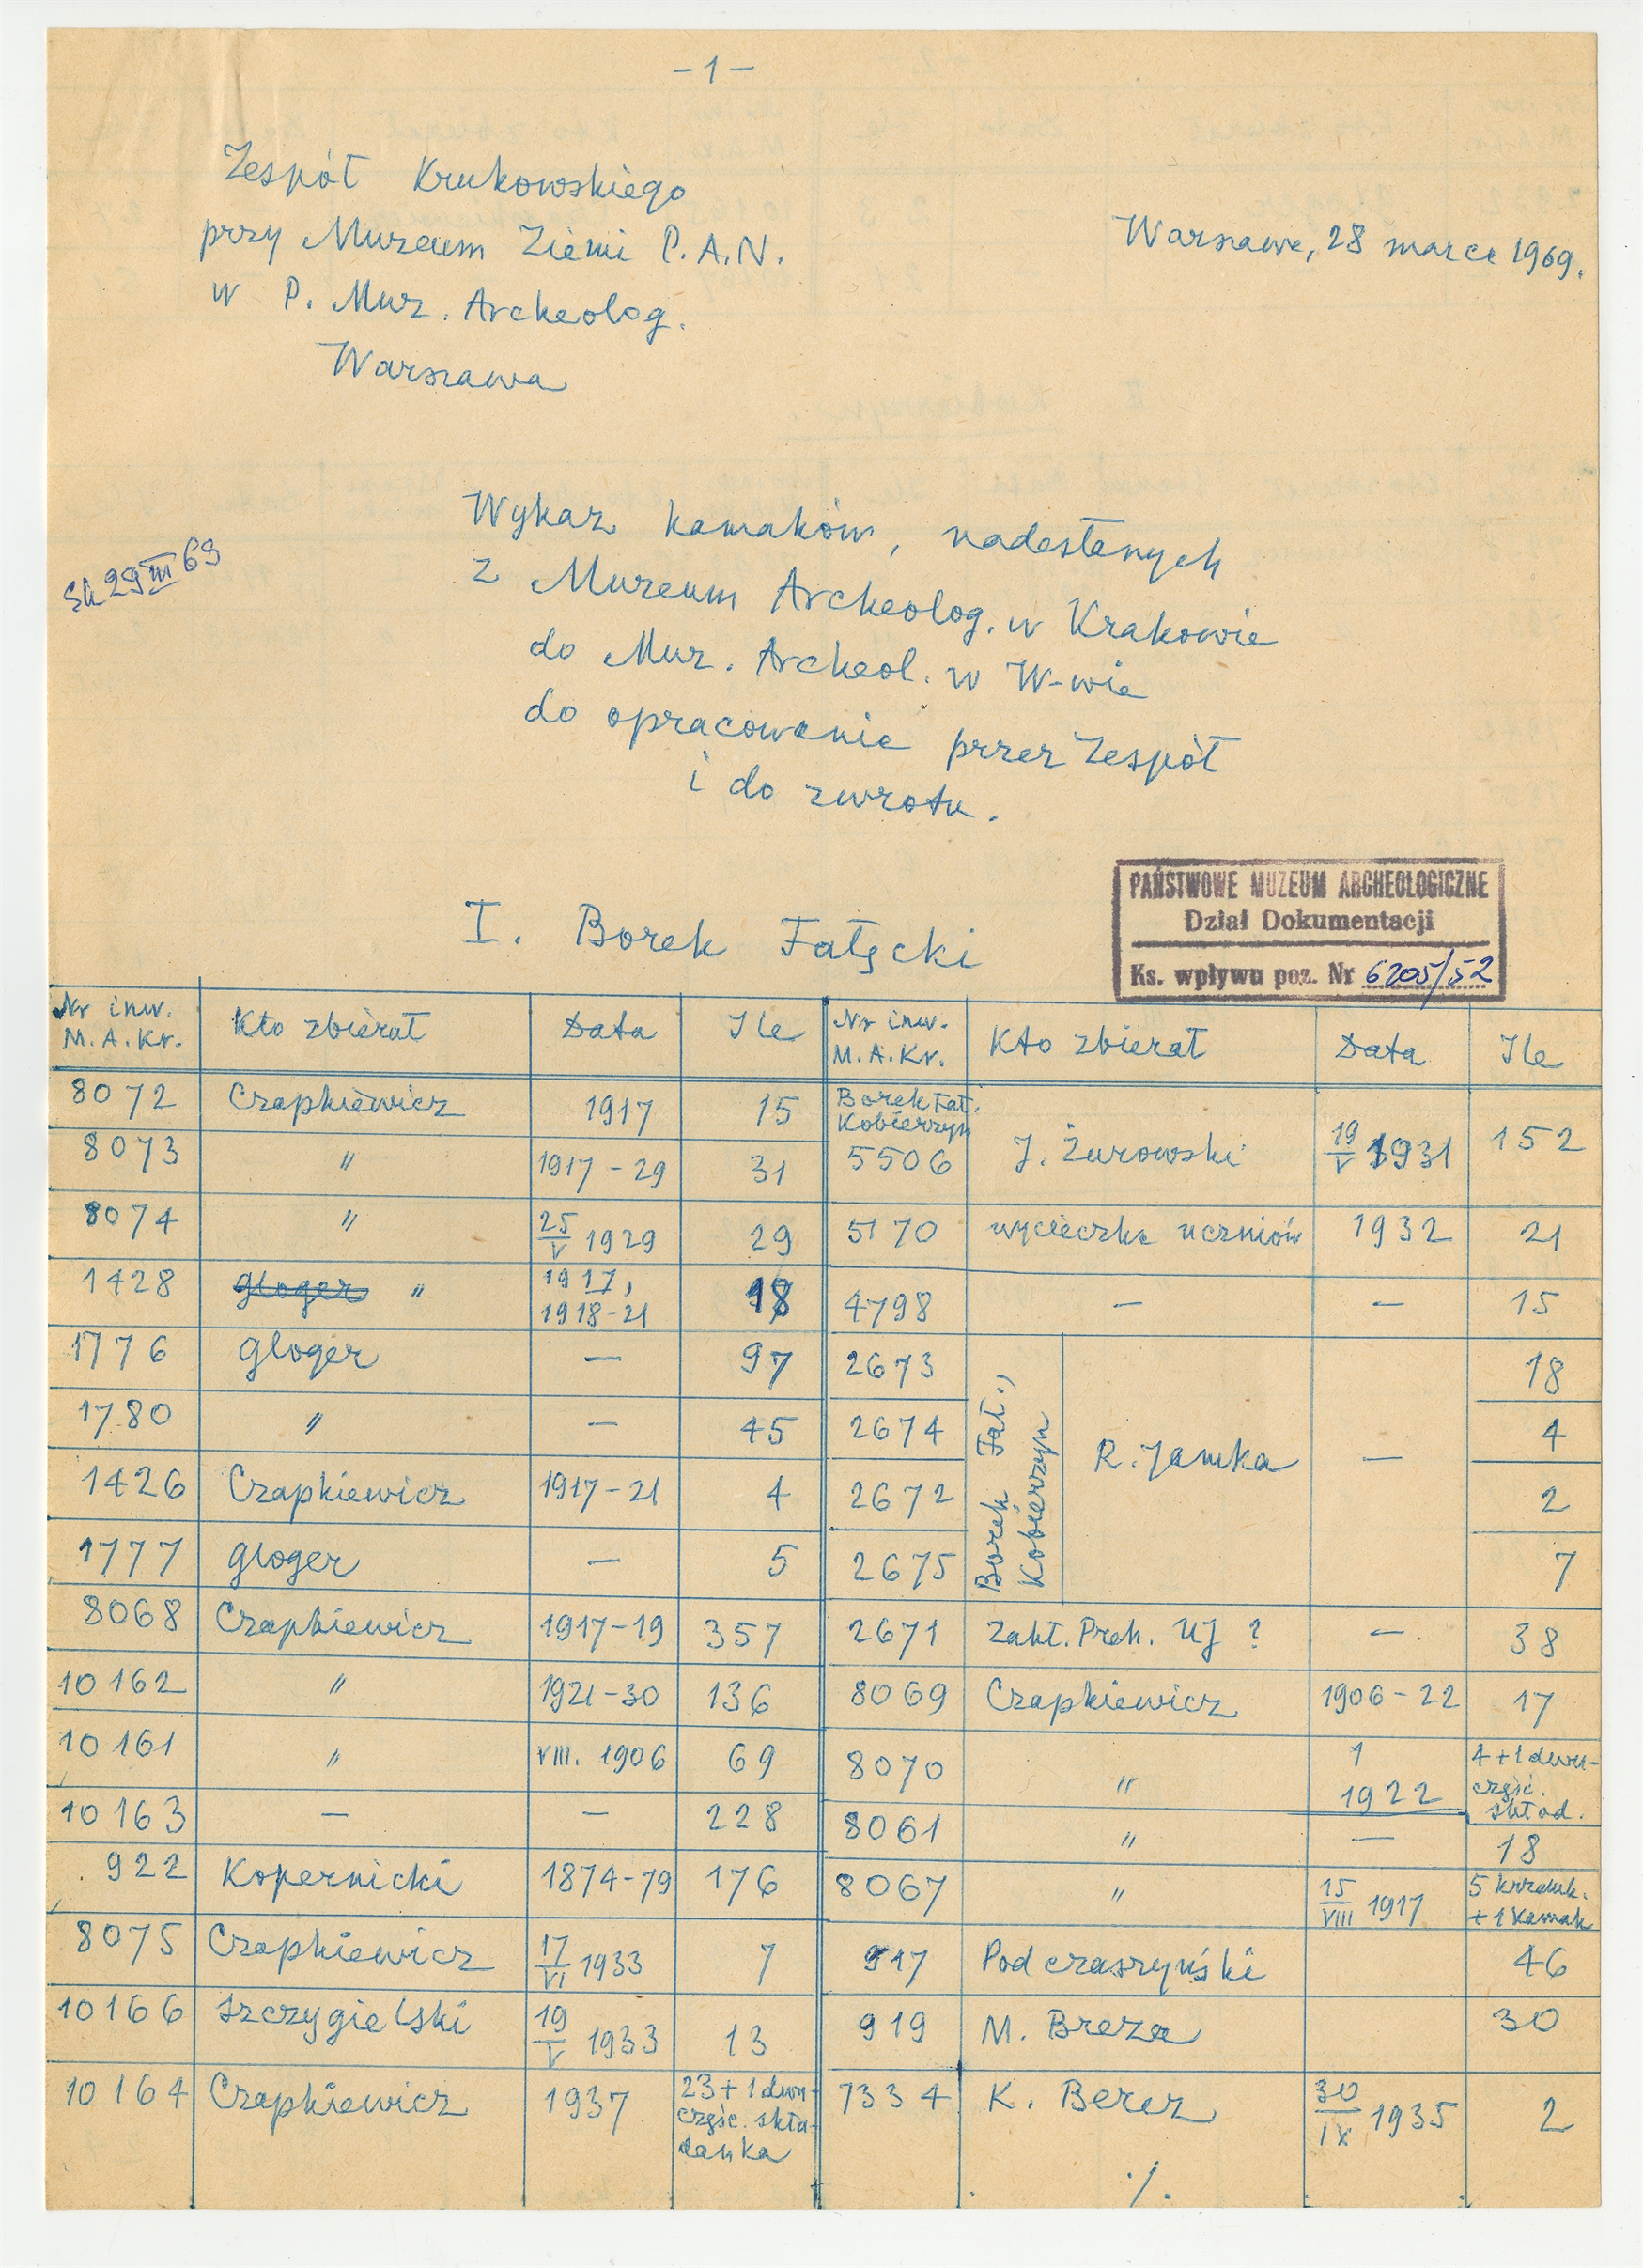 - 1 -
Zespół Krukowskiego
przy Muzeum Ziemi P.A.N.
w P. Muz. Archeolog.
Warszawa
Warszawa, 28 marca 1969.
Sk 29 III 69
Wykaz kamaków, nadesłanych
z Muzeum Archeolog. w Krakowie
do Muz. Archeol. w W-wie
do opracowania przez Zespół
i do zwrotu.
PAŃSTWOWE MUZEUM ARCHEOLOGICZNE
Dział Dokumentacji
Ks. wpływu poz. Nr 6205/52
I. Borek Fałęcki
Nr inw. M.A.Kr. Kto zbierał Data Ile Nr inw. M.A.Kr. Kto zbierał Data Ile
8072 Czapkiewicz 1917 15 Borek Fał. Kobierzyn
8073 " 1917-29 31 5506 J. Żurowski 19/V 1931 152
8074 " 25/V 1929 29 5170 wycieczka uczniów 1932 21
1428 Gloger " 1917, 1918-21 18 4798 — — 15
1776 Gloger — 97 2673 Borek Fał., Kobierzyn R. Jamka — 18
1780 " — 45 2674 4
1426 Czapkiewicz 1917-21 4 2672 2
1777 Gloger — 5 2675 7
8068 Czapkiewicz 1917-19 357 2671 Zakł. Preh. UJ ? — 38
10162 " 1921-30 136 8069 Czapkiewicz 1906-22 17
10161 " VIII. 1906 69 8070 " 1 1922 4+1 dwu-częśc. skład.
10163 — — 228 8061 " — 18
922 Kopernicki 1874-79 176 8067 " 15/VIII 1917 5 krzemk. + 1 kamak
8075 Czapkiewicz 17/VI 1933 7 917 Podczaszyński 46
10166 Szczygielski 19/V 1933 13 919 M. Breza 30
10164 Czapkiewicz 1937 23+1 dwu-częśc. składanka 7334 K. Berez 30/IX 1935 2
./.